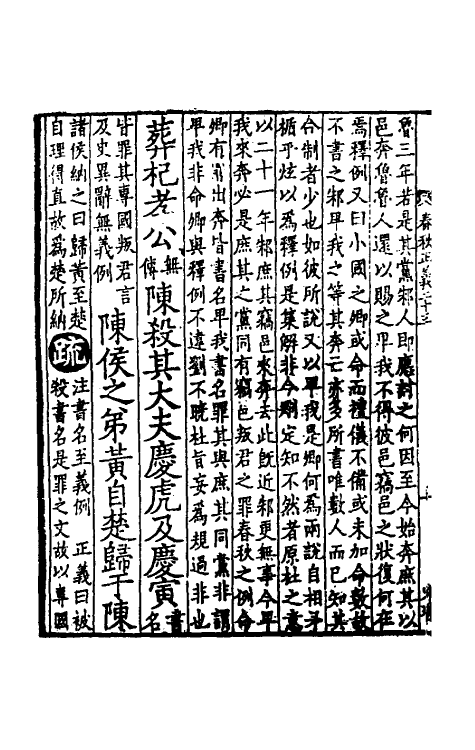 春秋正義二十三
魯三年若是其黨邾人即應討之何因至今始奔庶其以
邑奔魯魯人還以賜之畀我不得彼邑竊邑之狀復何在
焉釋例又曰小國之卿或命而禮儀不備或未加命數故
不書之邾畀我之等其奔亡亦多所書唯數人而已知其
合制者少也如彼所說又以畀我是卿何爲兩說自相矛
楯乎炫以爲釋例是集解非今刪定知不然者原杜之意
以二十一年邾庶其竊邑來奔去此旣近邾更無事今畀
我來奔必是庶其之黨同有竊邑叛君之罪春秋之例命
卿有罪出奔皆書名畀我書名罪其與庶其同黨非謂
畀我非命卿與釋例不違劉不曉杜旨妄爲規過非也
葬杞孝公無傳陳殺其大夫慶虎及慶寅書名
皆罪其專國叛君言
及史異辭無義例
陳侯之弟黃自楚歸于陳
諸侯納之曰歸黃至楚
自理得直故爲楚所納
疏
注書名至義例 正義曰被
殺書名是罪之文故以專國